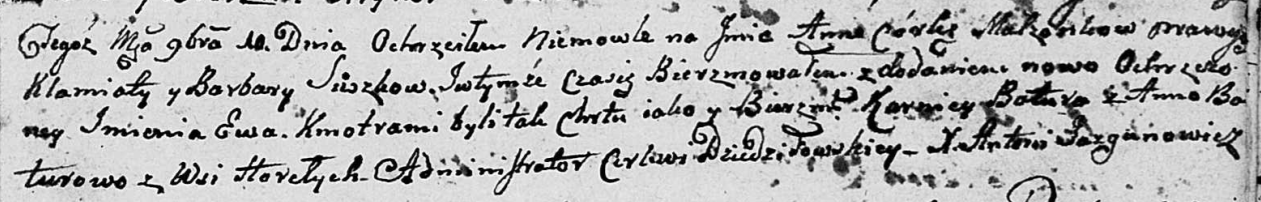 Tegoż Mca 9bra 10. Dnia Ochrzciłem Niemowle na Jmie Anna Córkę Małżonkow prawych
Klamiaty y Barbary Suszkow. Jwtymże czasię Bierzmowałem z dodaniem nowo Ochrzczo
ney Jmienia Ewa. Kmotrami byli tak Chrtu iako y Bierzm: Karniey Batura z Anno Ba
turowo z Wsi Horełych. Administrator Cerkwi Dziedziłowskiey. X. Antoni Jazgunowicz